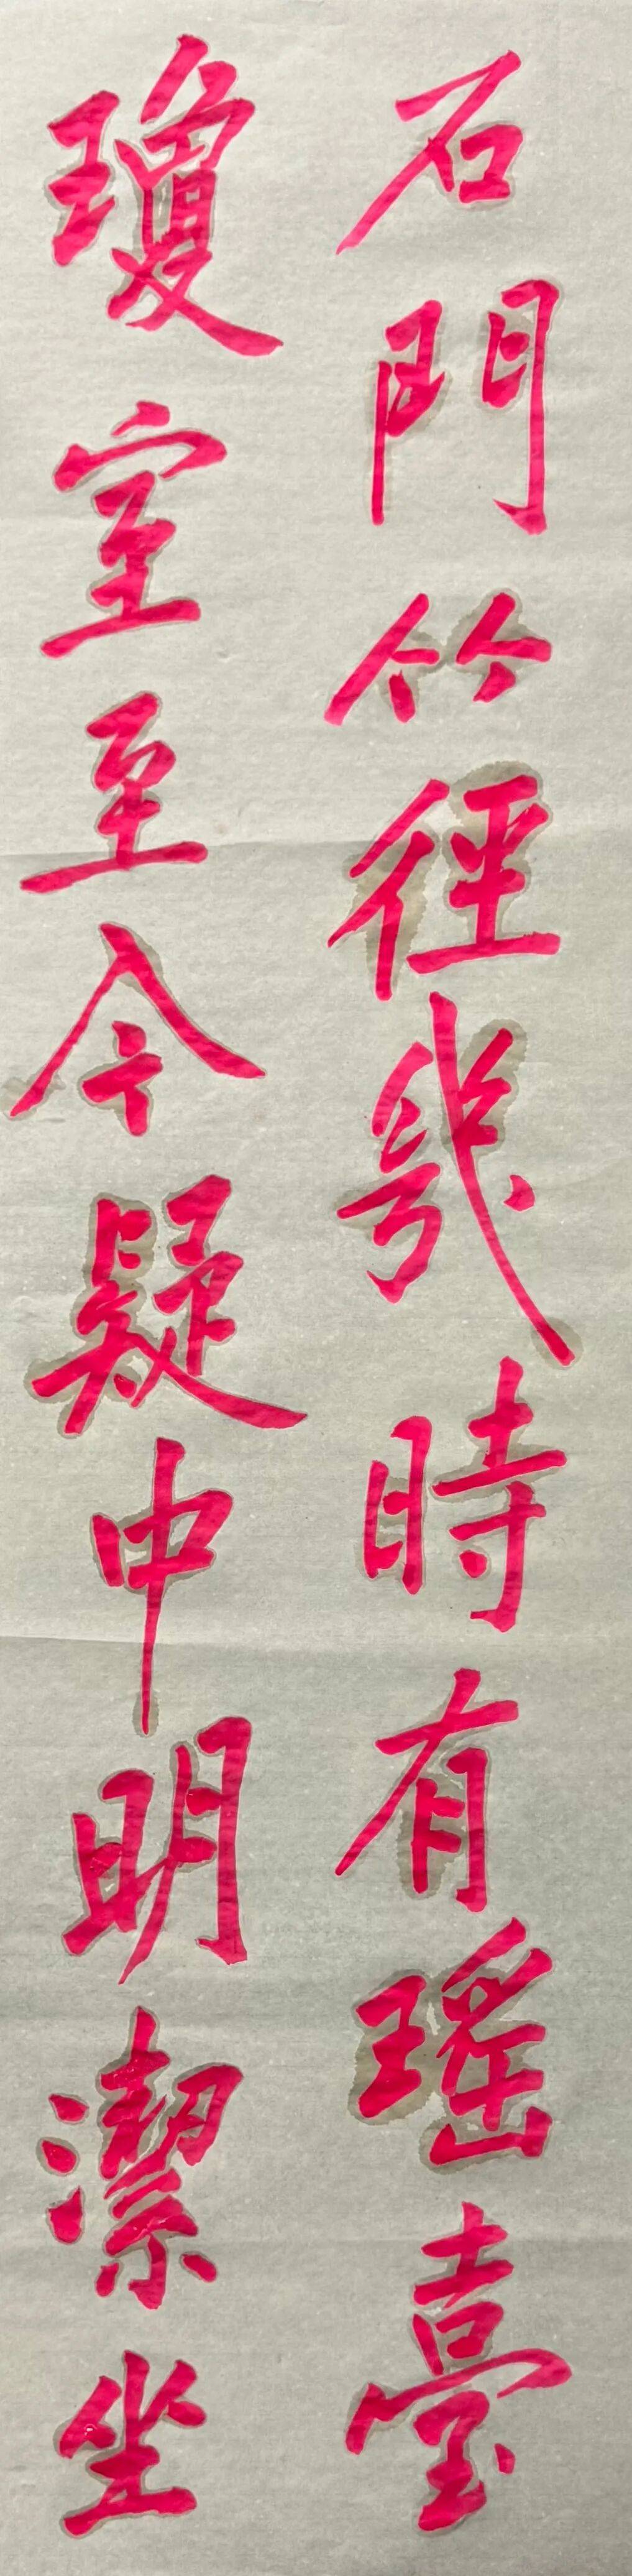 石門竹徑幾時有瑤臺
瓊室至今疑中明潔坐